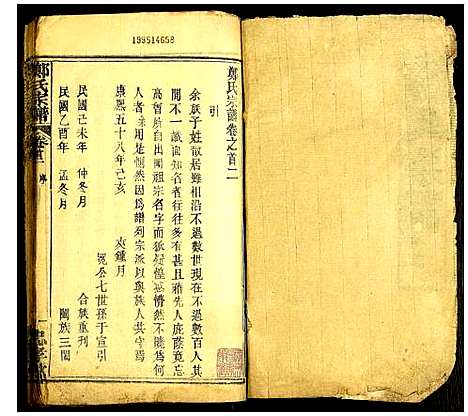 199514658
鄭氏宗譜卷之首二
引
余族子姓散居雖相沿不過數世現在不過數百人其
間不一識面者行往多有甚至藉先人庇蔭竟忘
高曾所自出聞祖宗名字而猶疑惶惑情然不知為何
人者深用是惻然因為譜列宗派以與族人其守焉
康熙五十八年己亥 夾鍾月
冕公七世孫于宣引
民國己未年 仲冬月 合族重刊
民國乙酉年 孟冬月 闔族三閱
鄭氏宗譜 卷首二 序 一